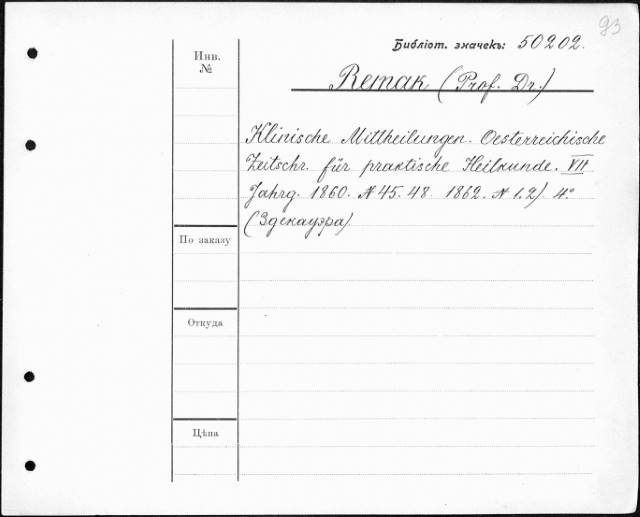 93
Библіот. значекъ: 50202.
Инв.
№
Remak (Prof. Dr.)
Klinische Mittheilungen. Oesterreichische
Zeitschr. für praktische Heilkunde. VII
Jahrg. 1860. № 45. 48. 1862. № 1. 2) 4º
(Здекауэра)
По заказу
Откуда
Цѣна